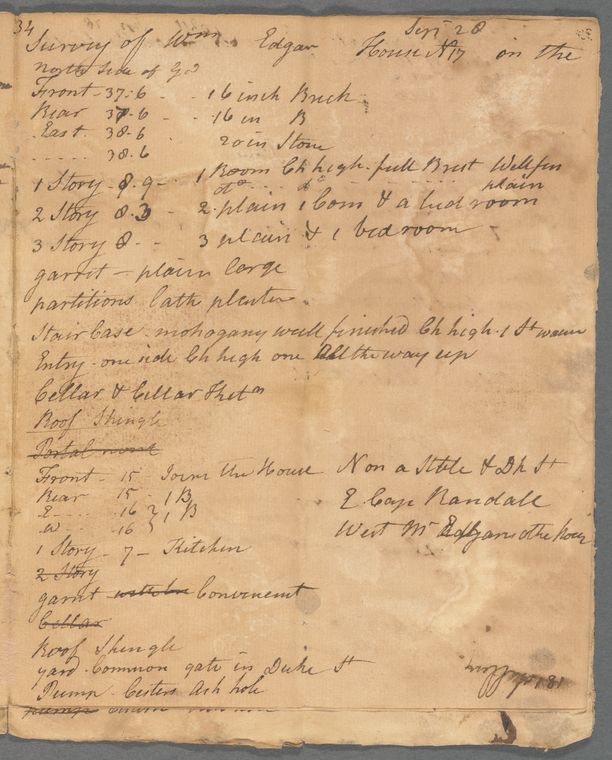 34
Sept 28
Survey of Wm Edgar House No 17 on the
North Side of
Front - 37-6 - - 16 inch Brick
Rear 37-6 - - 16 in B
East 38-6 20 in Stone
..... 38.6
1 Story - 8.9 - 1 Room Ch high full Brest Well fin
do do plain
2 Story 8.3 - 2 plain 1 Com & a bed room
3 Story 8 - - 3 plain & 1 bed room
garret - plain large
partitions lath plaster
Stair Case - mohagany well finished Ch high 1 St
Entry - one side Ch high one All the way up
Cellar & Cellar Kitn
Roof Shingle
Front - 15 Joins the House N on a Stble & Dk St
Rear 15 - 1 B
E Cap Randall
E - - - 16 } 1 B
W - - 16
West Mr Edgars other House
1 Story - 7 - Kitchen
2 Story
garret Convenient
Cellar
Roof Shingle
yard Common gate in Duke St
Pump Cestern Ash hole
pump